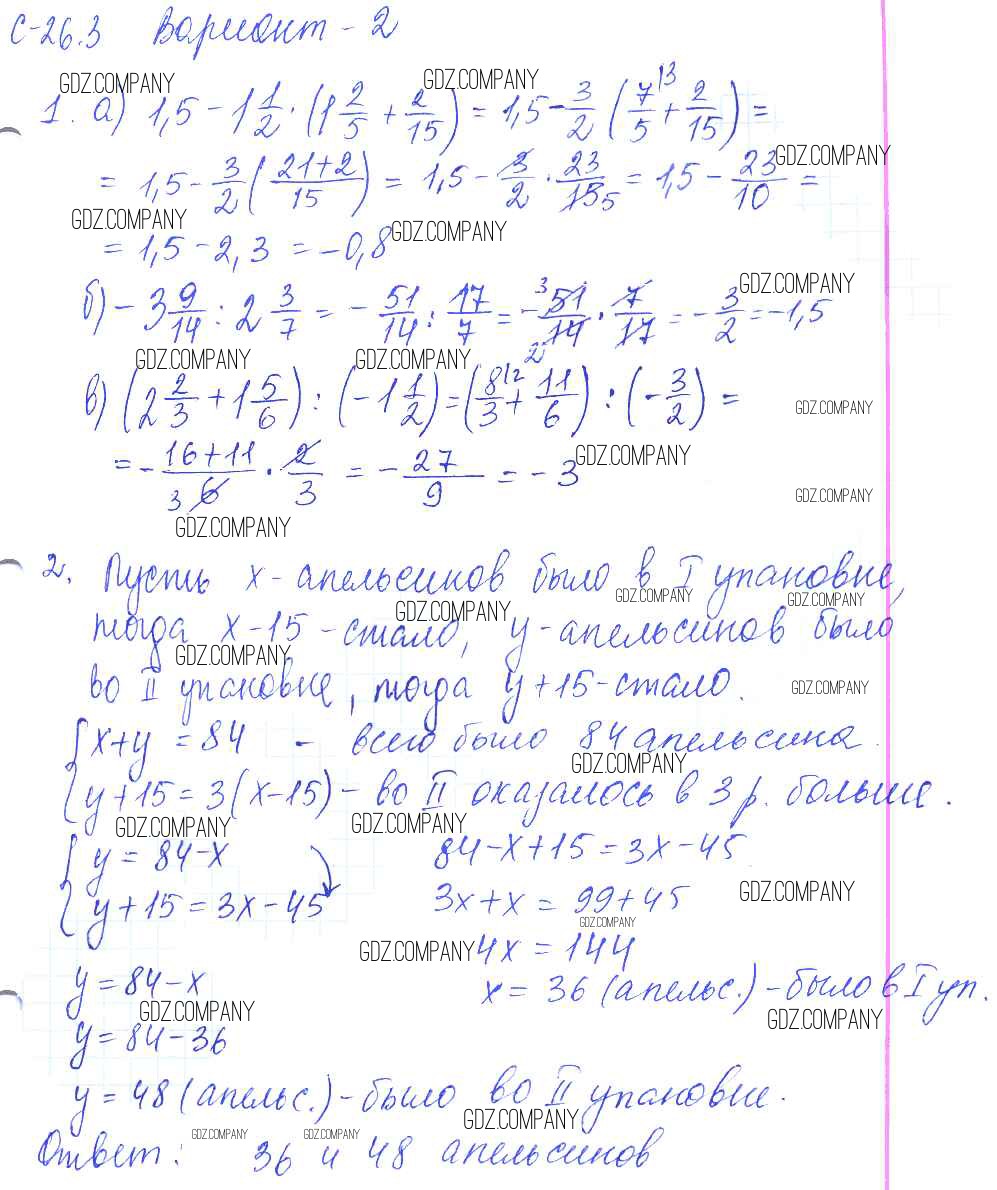 С-26.3 Вариант - 2
GDZ.COMPANY GDZ.COMPANY
1. а) 1,5 - 1 1/2 · (1 2/5 + 2/15) = 1,5 - 3/2 (7/5 |3 + 2/15) =
GDZ.COMPANY
= 1,5 - 3/2 (21+2/15) = 1,5 - 3/2 · 23/15 5 = 1,5 - 23/10 =
GDZ.COMPANY GDZ.COMPANY
= 1,5 - 2,3 = -0,8
GDZ.COMPANY
б) - 3 9/14 : 2 3/7 = - 51/14 : 17/7 = - 3 51/14 2 · 7/17 = - 3/2 = -1,5
GDZ.COMPANY GDZ.COMPANY
в) (2 2/3 + 1 5/6) : (-1 1/2) = (8/3 |2 + 11/6) : (- 3/2) =
GDZ.COMPANY
= - 16+11/3 6 · 2/3 = - 27/9 = - 3
GDZ.COMPANY
GDZ.COMPANY
GDZ.COMPANY
2. Пусть x - апельсинов было в I упаковке,
GDZ.COMPANY GDZ.COMPANY GDZ.COMPANY
тогда x-15 - стало, y - апельсинов было
GDZ.COMPANY
во II упаковке, тогда y+15 - стало.
GDZ.COMPANY
{ x+y = 84 - всего было 84 апельсина.
GDZ.COMPANY
y+15 = 3(x-15) - во II оказалось в 3 р. больше.
GDZ.COMPANY GDZ.COMPANY
{ y = 84-x 84-x+15 = 3x-45
GDZ.COMPANY
y+15 = 3x-45 3x+x = 99+45
GDZ.COMPANY
GDZ.COMPANY 4x = 144
y = 84-x x = 36 (апельс.) - было в I уп.
GDZ.COMPANY GDZ.COMPANY
y = 84-36
y = 48 (апельс.) - было во II упаковке.
GDZ.COMPANY
GDZ.COMPANY GDZ.COMPANY
Ответ: 36 и 48 апельсинов